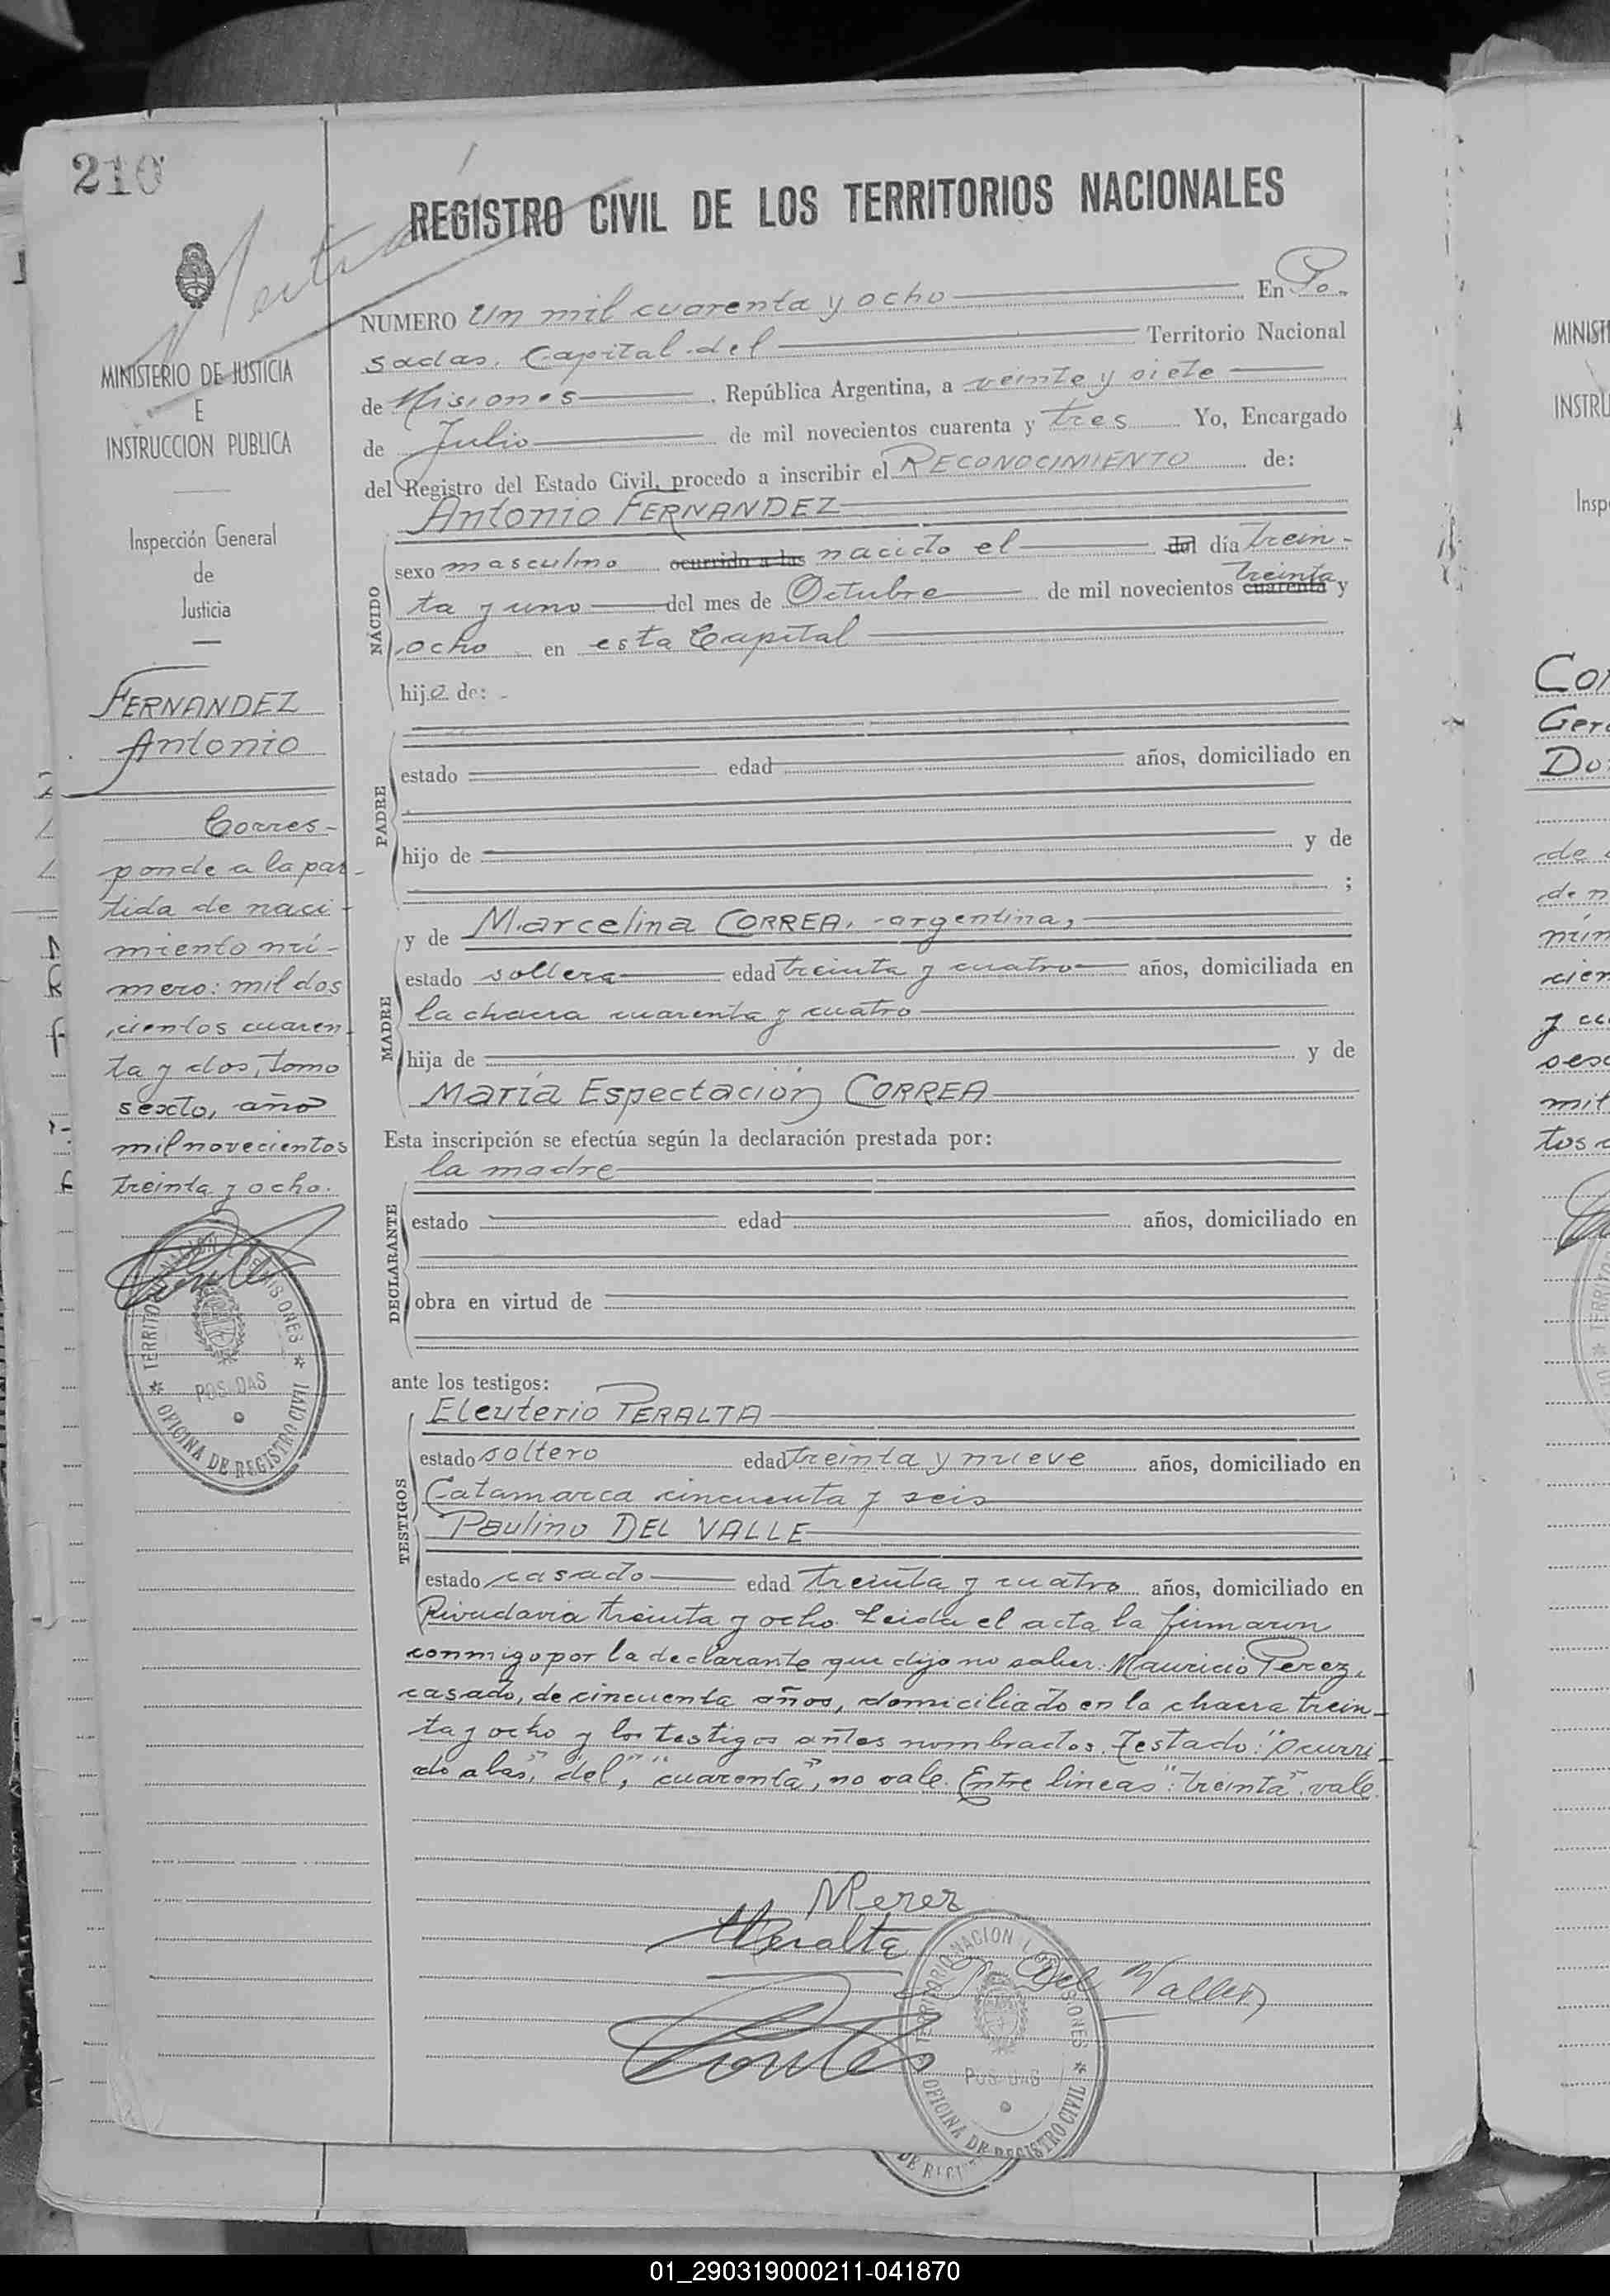 210
REGISTRO CIVIL DE LOS TERRITORIOS NACIONALES
NUMERO Un mil cuarenta y ocho En Po-
sadas, Capital del Territorio Nacional
de Misiones, República Argentina, a veinte y siete
de Julio de mil novecientos cuarenta y tres Yo, Encargado
del Registro del Estado Civil, procedo a inscribir el RECONOCIMIENTO de:
Antonio FERNANDEZ
NACIDO
sexo masculino ocurrido a las nacido el del día trein-
ta y uno del mes de Octubre de mil novecientos cuarenta treinta y
ocho en esta Capital
hijo de:
PADRE
estado edad años, domiciliado en
hijo de y de
;
MADRE
y de Marcelina CORREA, argentina,
estado soltera edad treinta y cuatro años, domiciliada en
la chacra cuarenta y cuatro
hija de y de
María Espectación CORREA
Esta inscripción se efectúa según la declaración prestada por:
la madre
DECLARANTE
estado edad años, domiciliado en
obra en virtud de
ante los testigos:
TESTIGOS
Eleuterio PERALTA
estado soltero edad treinta y nueve años, domiciliado en
Catamarca cincuenta y seis
Paulino DEL VALLE
estado casado edad treinta y cuatro años, domiciliado en
Rivadavia treinta y ocho. Leida el acta la firmaron
conmigo por la declarante que dijo no saber: Mauricio Perez,
casado, de cincuenta años, domiciliado en la chacra trein-
ta y ocho y los testigos antes nombrados. Testado: "ocurri-
do a las", "del", "cuarenta", no vale. Entre lineas: "treinta". vale.
MPerez
Peralta
P. Del Valle
TERRITORIO NACIONAL DE MISIONES
POSADAS
OFICINA DE REGISTRO CIVIL
MINISTERIO DE JUSTICIA
E
INSTRUCCION PUBLICA
Inspección General
de
Justicia
FERNANDEZ
Antonio
Corres-
ponde a la par-
tida de naci-
miento nú-
mero: mil dos
cientos cuaren-
ta y dos, tomo
sexto, año
mil novecientos
treinta y ocho.
TERRITORIO NACIONAL DE MISIONES
POSADAS
OFICINA DE REGISTRO CIVIL
DE REGI
MINIST
INSTRU
Insp
Co
Ger
Do
01_290319000211-041870